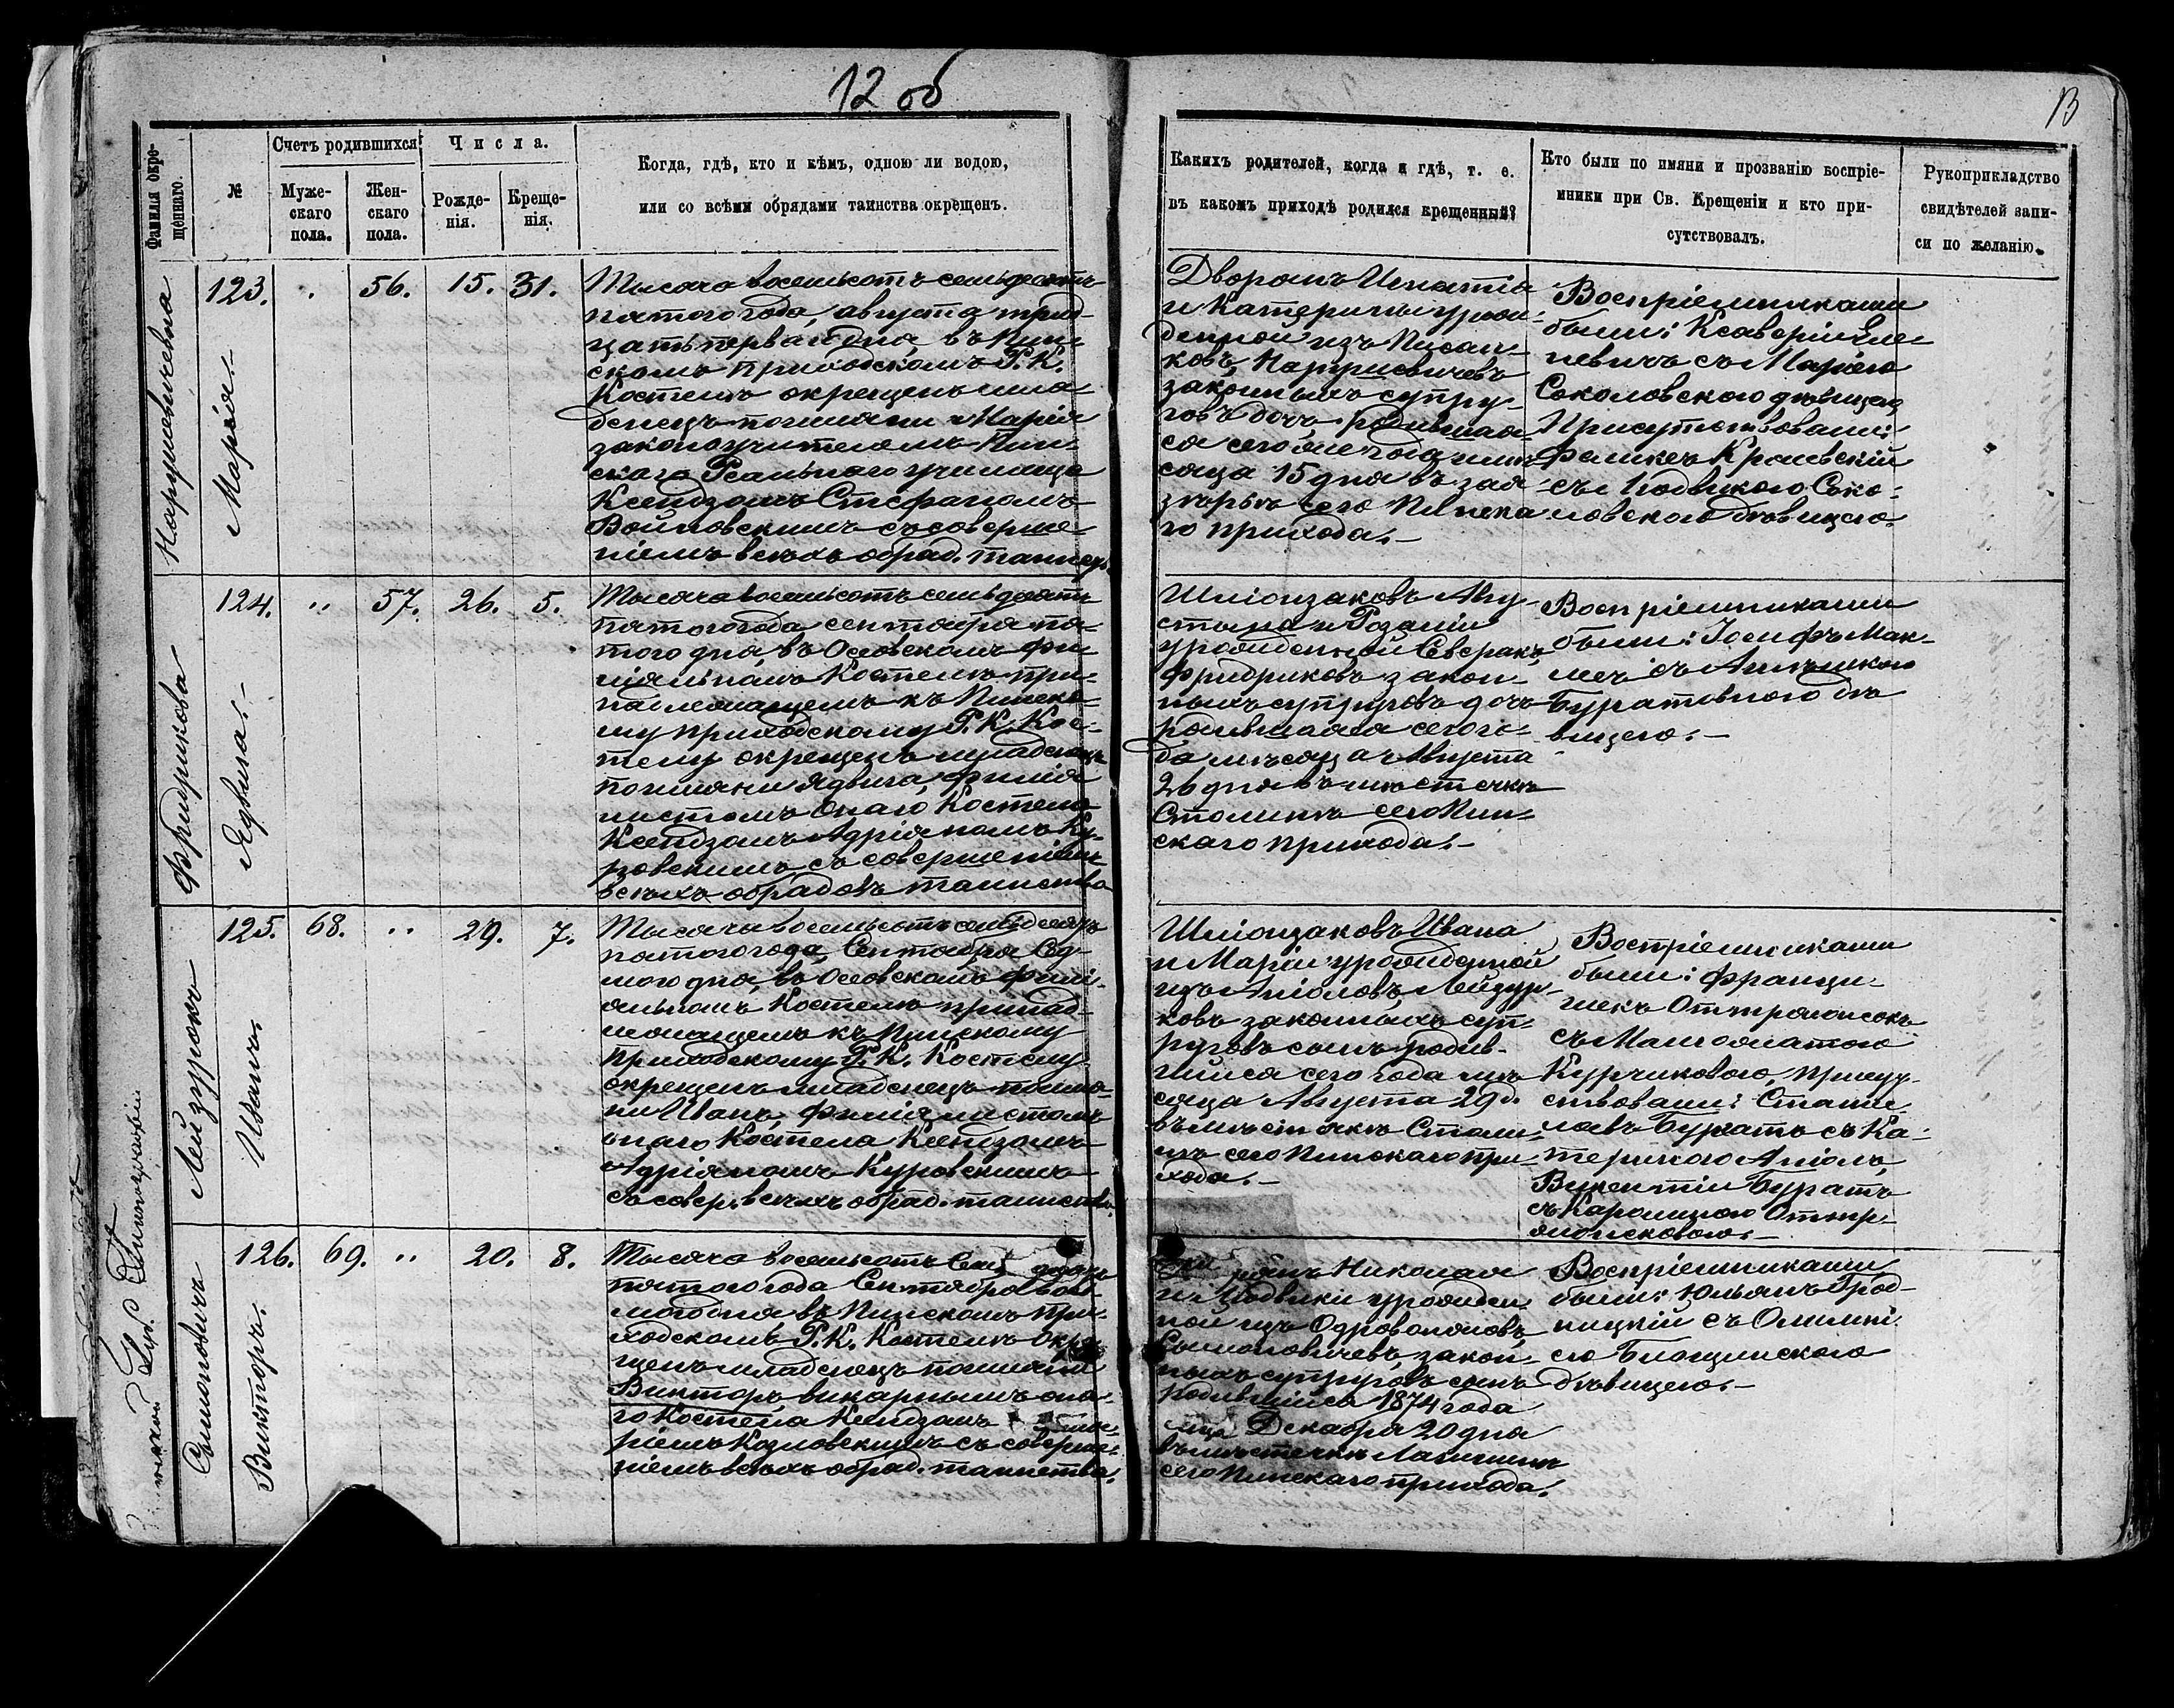 12 об
13
Фамилія окре-
щеннаго.
№
Счетъ родившихся
Муже-
скаго
пола.
Жен-
скаго
пола.
Числа.
Рожде-
нія.
Креще-
нія.
Когда, гдѣ, кто и кѣмъ, одною ли водою,
или со всѣми обрядами таинства окрещенъ.
Какихъ родителей, когда и гдѣ, т. е.
въ какомъ приходѣ родился крещенный?
Кто были по имяни и прозванію воспріе-
мники при Св. Крещеніи и кто при-
сутствовалъ.
Рукоприкладство
свидѣтелей запи-
си по желанію.
Нарушевичевна
Марія.
123.
56.
15.
31.
Тысяча восемьсотъ семьдесятъ
пятого года, августа трид-
цать перваго дня въ Пин-
скомъ приходскомъ Р. К.
Костелѣ окрещенъ мла-
денецъ по имяни Марія
законоучителемъ Пин-
скаго Реальнаго училища
Ксендзомъ Стефаномъ
Войновскимъ съ соверше-
ніемъ всѣхъ обряд. таинст.
Дворянъ Игнатія
и Катерины урож-
денной изъ
Нарушевичевъ
законныхъ супру-
говъ дочь, родившая-
ся сего же года мѣ-
сяца 15 дня въ
сего Пинска-
го прихода.
Воспріемниками
были: Ксаверій
съ Маріею
Соколовскою дѣвицею,
Присутствовали:
Феликсъ
съ Людвикою Соко-
ловскою дѣвицею.
Фридрикова
Ядвига.
124.
57.
26.
5.
Тысяча восемьсотъ семьдесятъ
пятого года сентября пя-
того дня, въ Осовскомъ фи-
ліяльномъ Костелѣ при-
надлежащемъ къ Пинско-
му приходскому Р. К. Кос-
телу окрещенъ младенецъ
по имяни Ядвига, филія-
листомъ онаго Костела
Ксендзомъ Адріяномъ Ку-
ровскимъ, съ совершеніемъ
всѣхъ обрядовъ таинства
Шліонзаковъ Авгу-
стына и Розаліи
урожденной
Фридриковъ закон-
ныхъ супруговъ дочь
родившаяся сего го-
да мѣсяца Августа
26 дня въ мѣстечкѣ
Столинѣ сего Пин-
скаго прихода.
Воспріемниками
были: Іосифъ
съ
дѣ-
вицею.
Лейзурокъ
Иванъ.
125.
68.
29.
7.
Тысяча восемьсотъ семьдесятъ
пятого года, Сентября Сед-
мого дня, въ Осовскомъ фили-
яльномъ Костелѣ принад-
лежащемъ къ Пинскому
приходскому Р. К. Костелу
окрещенъ младенецъ по имя-
ни Иванъ, филіялистомъ
онаго Костела Ксендзомъ
Адріяномъ Куровскимъ
съ совер. всѣхъ обряд. таинства.
Шліонзаковъ Ивана
и Маріи урожденной
изъ Аніоловъ, Лейзур-
ковъ законныхъ суп-
руговъ сынъ родив-
шійся сего года мѣ-
сяца Августа 29 д.
въ мѣстечкѣ Столи-
нѣ сего Пинскаго при-
хода.
Воспріемниками
были: Франци-
шекъ
съ Малгожатою
Курчиковою, присут-
ствовали: Стани-
лавъ Буратъ съ Ка-
териною Аніолъ,
Викентій Буратъ
съ Каролиною
Сымоновичъ
Викторъ.
126.
69.
20.
8.
Тысяча восемьсотъ
пятого года Сентября вось-
мого дня, въ Пинскомъ при-
ходскомъ Р. К. Костелѣ окре-
щенъ младенецъ по имяни
Викторъ викарнымъ она-
го Костела Ксендзомъ
Козловскимъ съ соверше-
ніемъ всѣхъ обряд. таинства.
Николая
и Людвики урожден-
ной изъ Одровонжовъ
Сымоновичевъ, закон-
ныхъ супруговъ сынъ
родившійся 1874 года
Декабря 20 дня
въ мѣстечкѣ Логишинѣ
сего Пинскаго прихода.
Воспріемниками
были: Юльянъ
съ
дѣвицею.